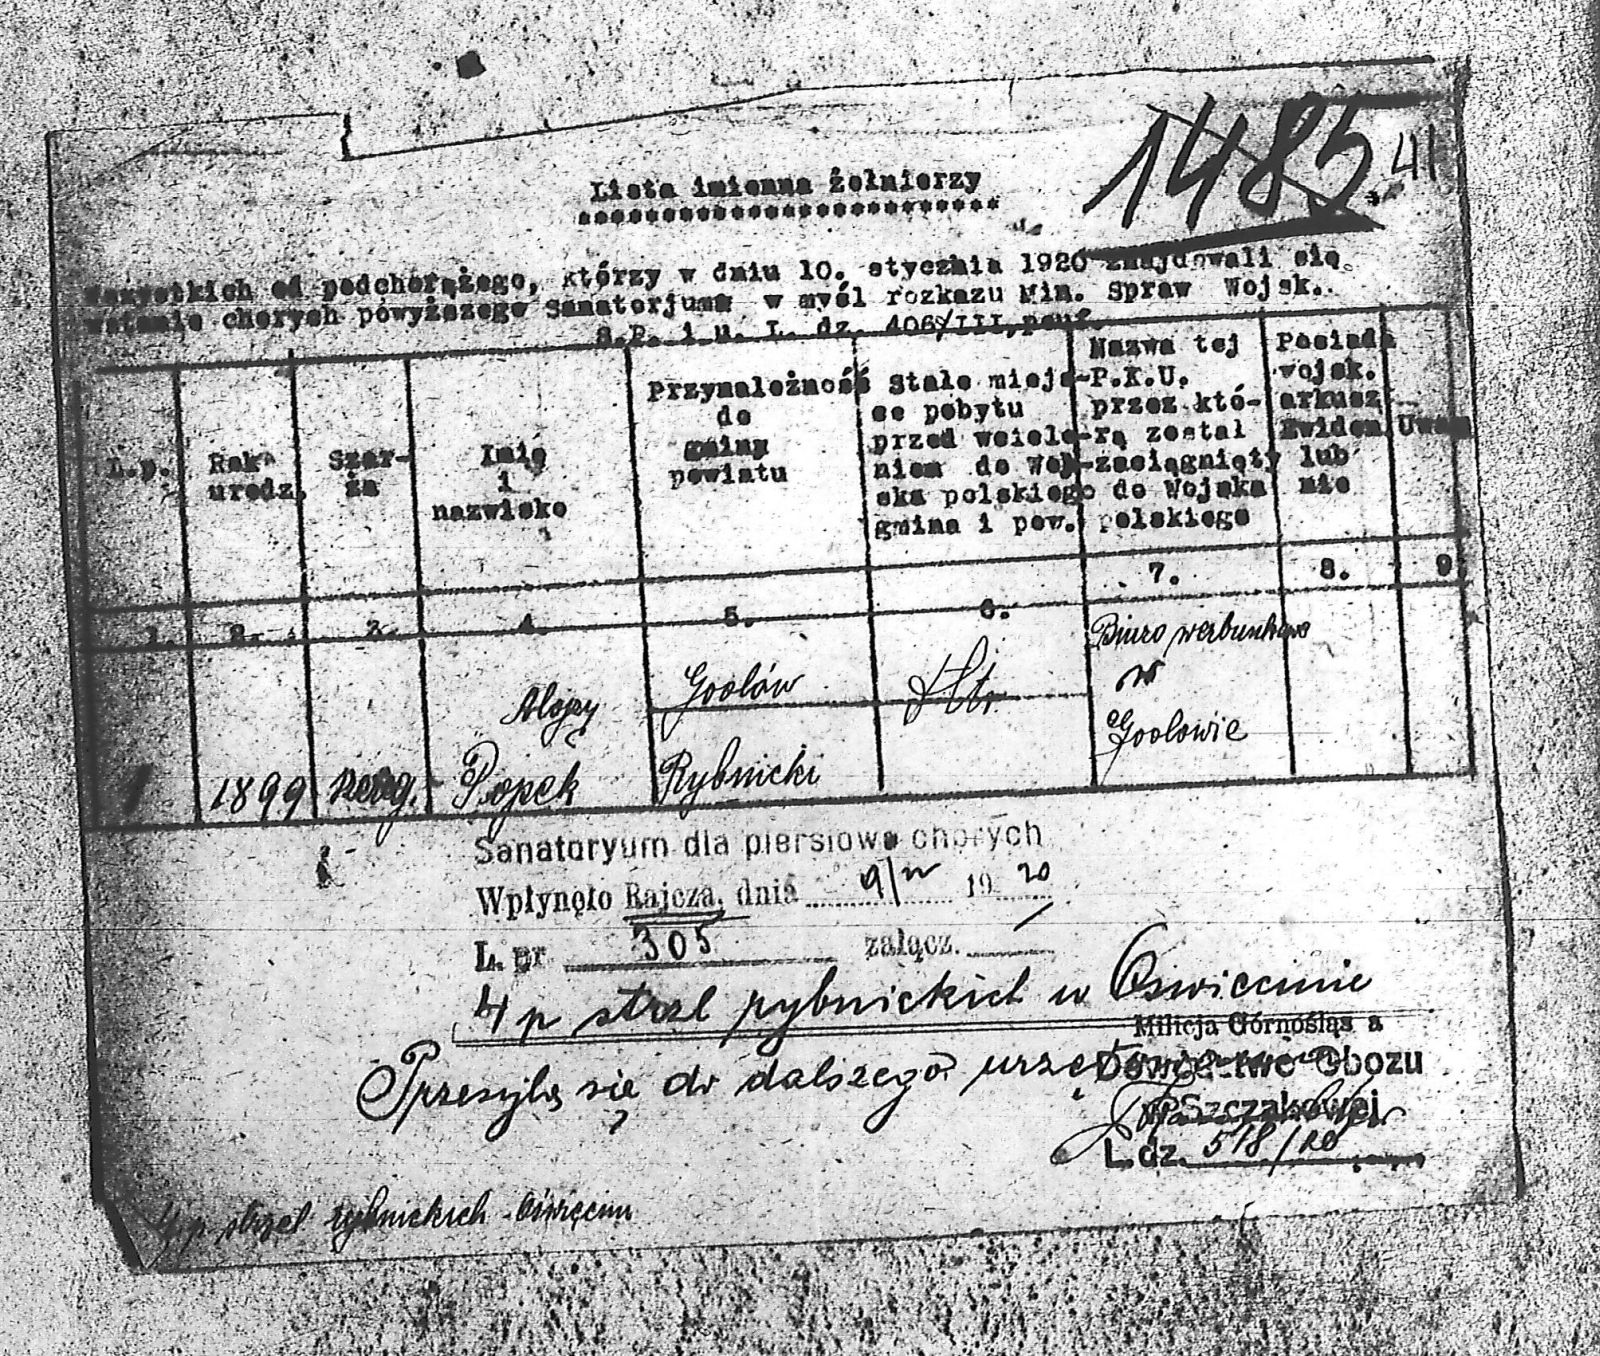 1485.
41
Lista imienna żołnierzy
wszystkich od podchorążego, którzy w dniu 10. stycznia 1920 znajdowali się
wstanie chorych powyższego Sanatorjum w myśl rozkazu Min. Spraw Wojsk.
L. dz. 406/III, pouf.
L.p.
Rok
urodz.
Szar-
ża
Imię
i
nazwisko
Przynależność
do
gminy
powiatu
Stałe miejs-
ce pobytu
przed wciele-
niem do Woj-
ska polskiego
gmina i pow.
Nazwa tej
P.K.U.
przez któ-
rą został
zaciągnięty
do Wojska
polskiego
Posiada
wojsk.
arkusz
Ewiden
lub
nie
Uwaga
1. 2. 3. 4. 5. 6. 7. 8. 9.
1
1899
Alojzy
Popek
Godów
Rybnicki
Biuro werbunkowe
w
Godowie
Sanatoryum dla piersiowo chorych
Wpłynęło Rajcza, dnia 9/IV 1920
L. pr 305 załącz.
4 p strzl rybnickich w Oświęcimie
Milicja Górnośląska
Przesyła się do dalszego
Dowództwo Obozu
w Szczakowej
L. dz. 518/20
4 p. strzel rybnickich Oświęcim